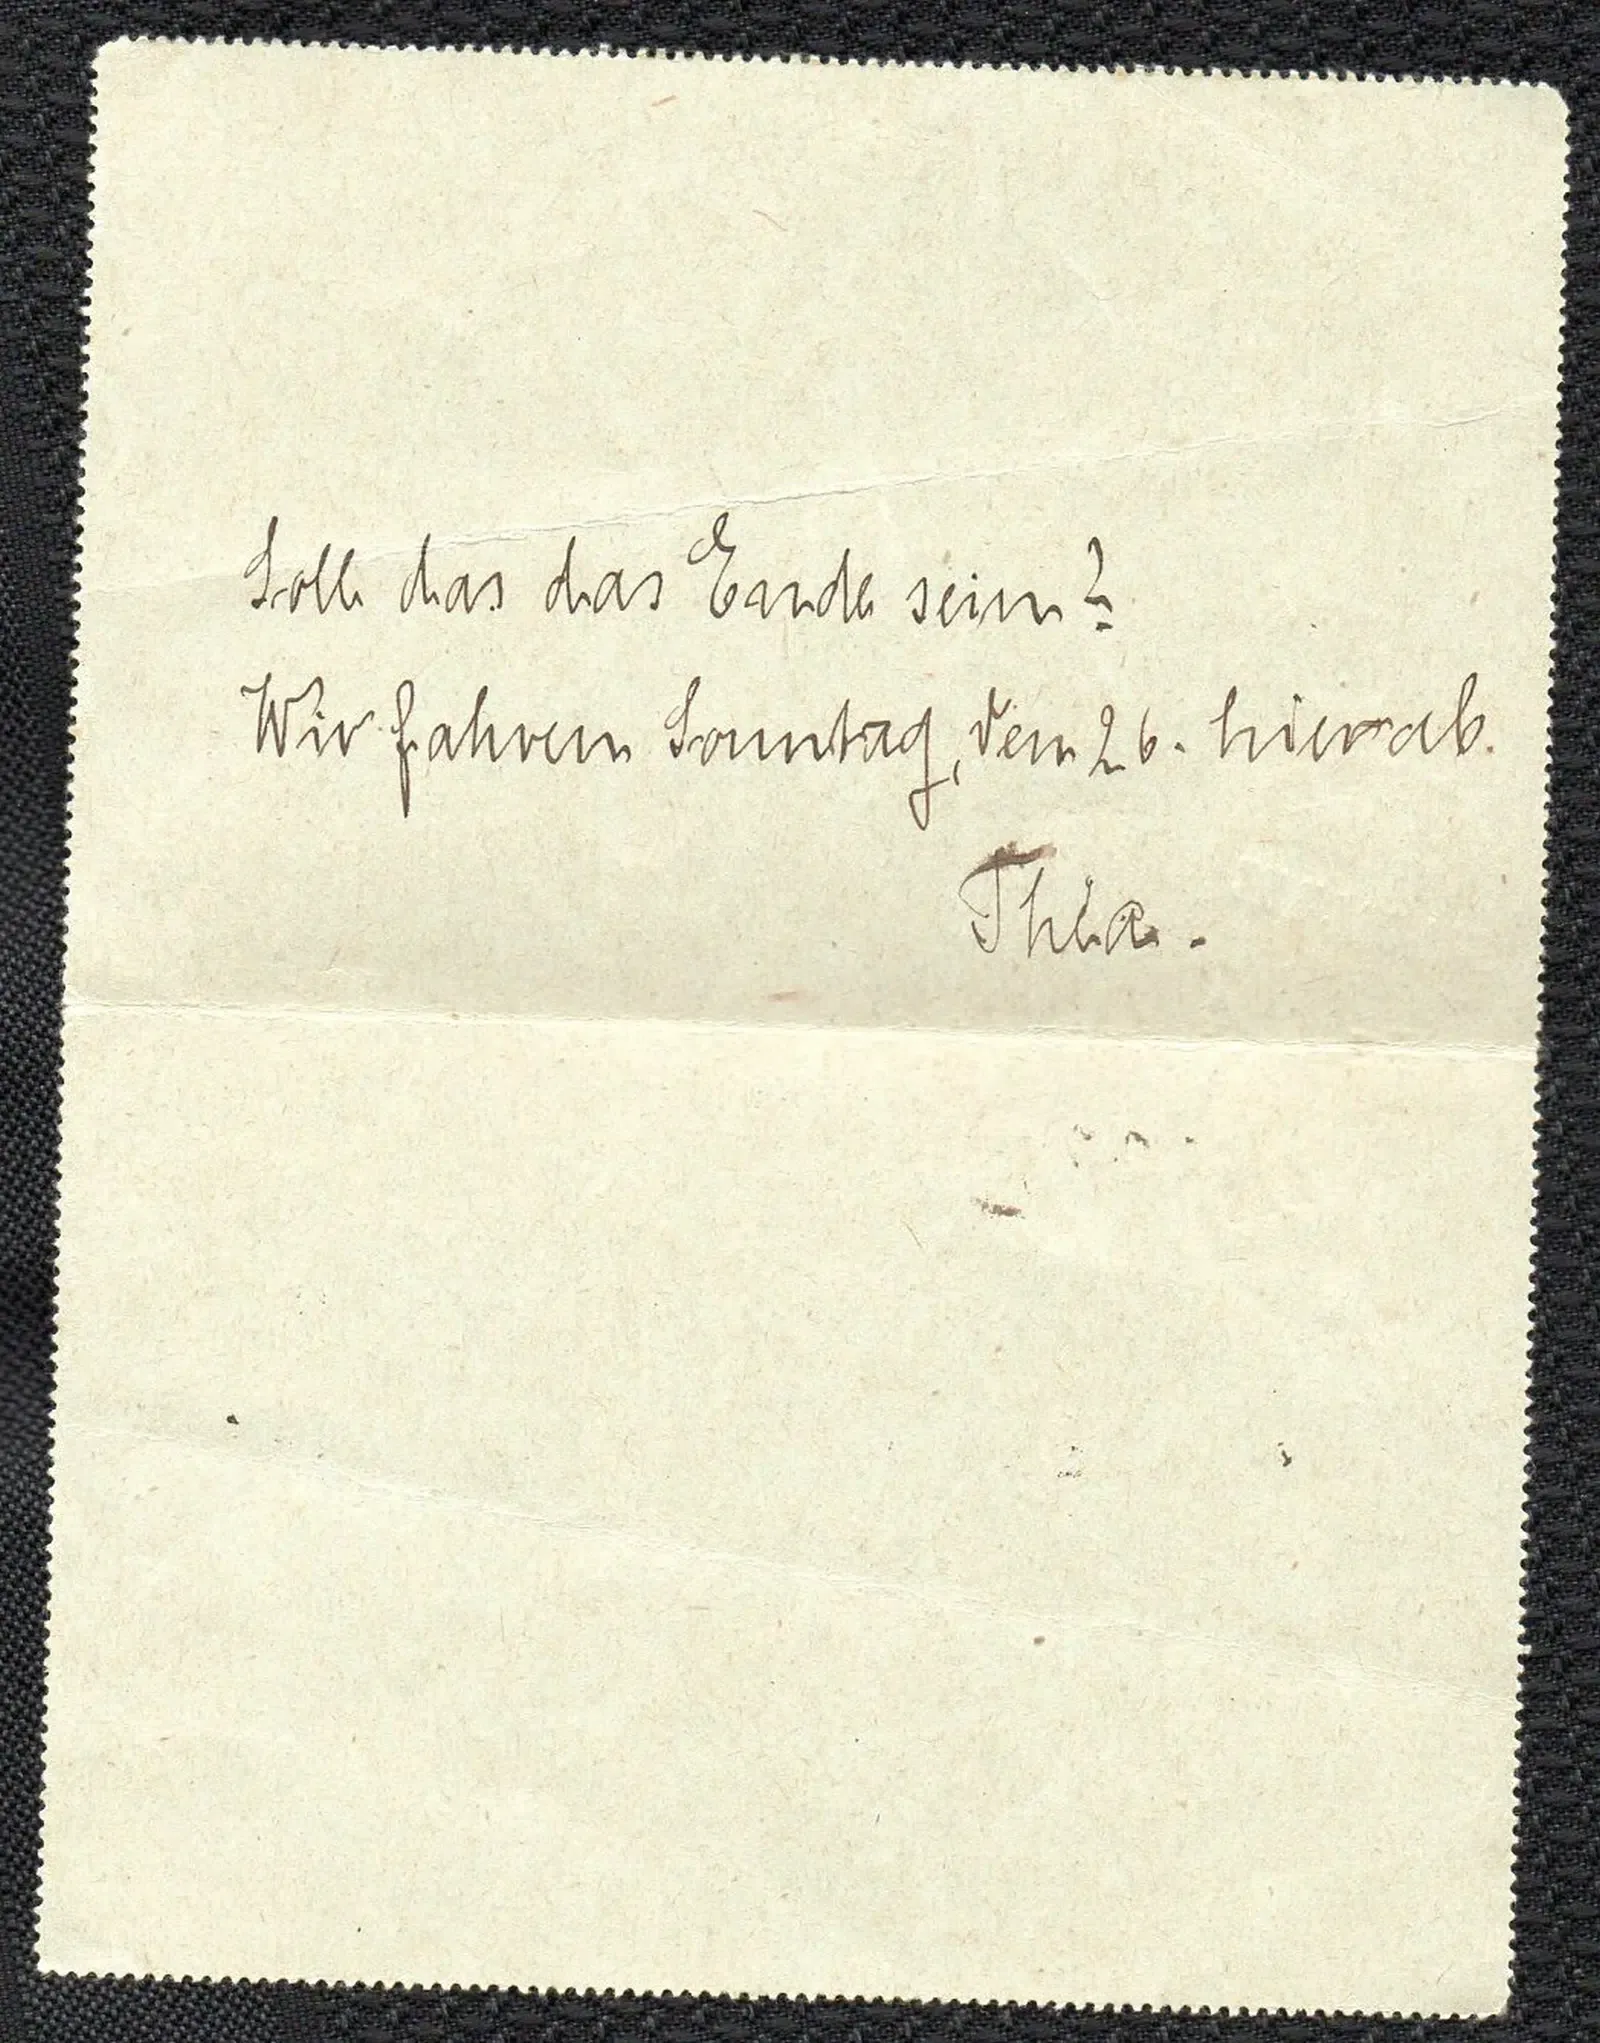 Soll das das Ende sein?
Wir fahren Sonntag, den 26. hier ab.
Thea.